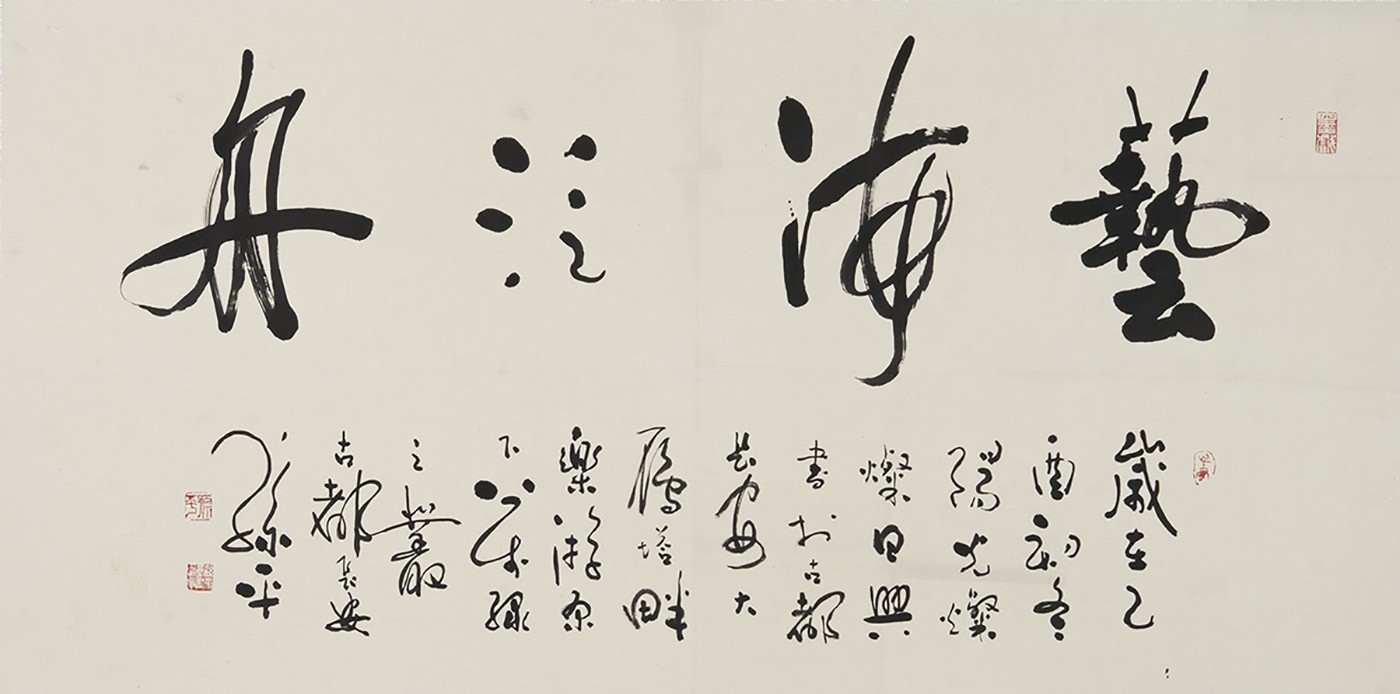 藝海泛舟
歲在乙
酉初冬
陽光燦
燦日興
書於古都
長安大
雁塔畔
樂游原
下
之叢
古都長安
孫平